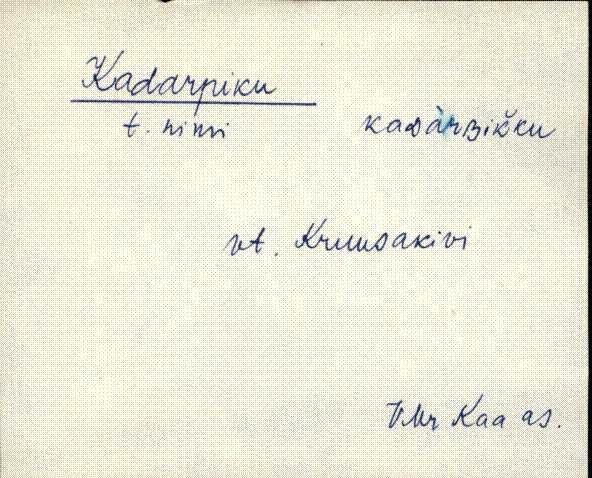 Kadarpiku
t. nimi kaᴅàrʙiš̀ku
vt. Kruusakivi
VMr Kaa as.